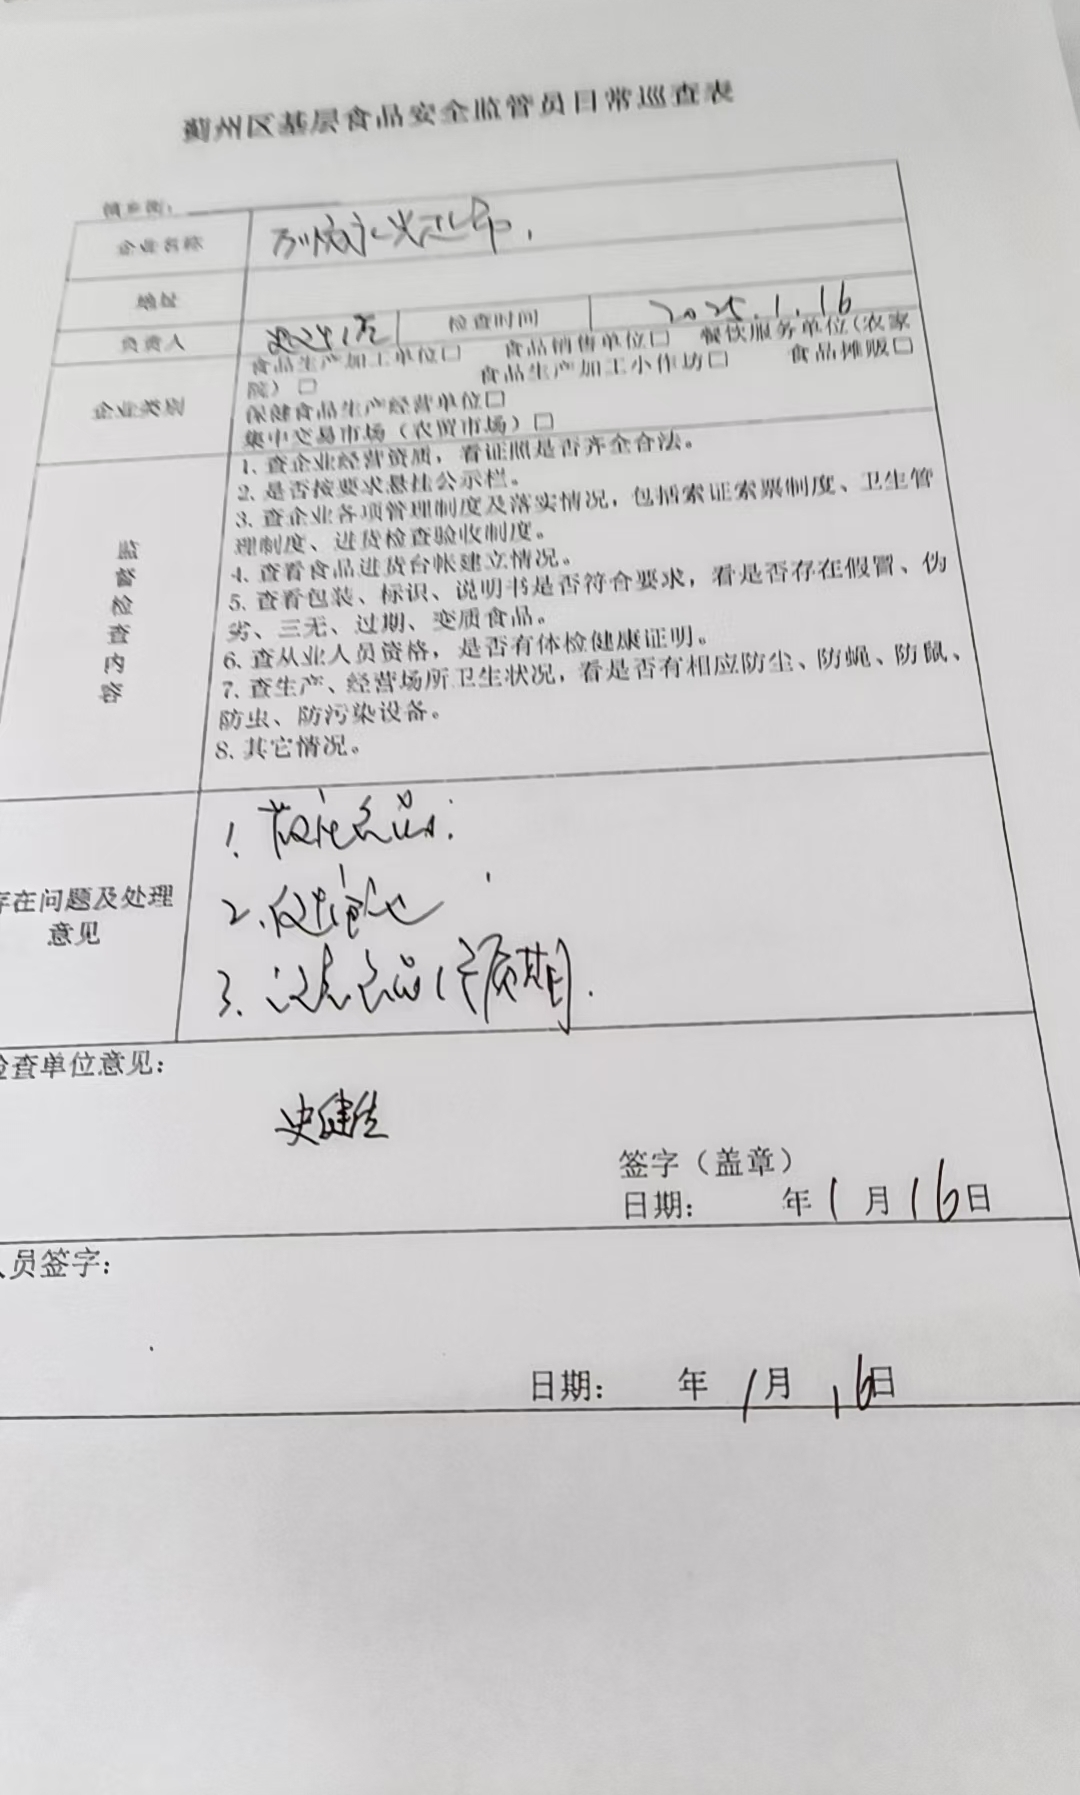 蓟州区基层食品安全监管员日常巡查表
镇乡街:
企业名称
地址
负责人 检查时间 2025.1.16
企业类别
食品生产加工单位□ 食品销售单位□ 餐饮服务单位(农家
院)□ 食品生产加工小作坊□ 食品摊贩□
保健食品生产经营单位□
集中交易市场(农贸市场)□
监督检查内容
1. 查企业经营资质，看证照是否齐全合法。
2. 是否按要求悬挂公示栏。
3. 查企业各项管理制度及落实情况，包括索证索票制度、卫生管
理制度、进货检查验收制度。
4. 查看食品进货台帐建立情况。
5. 查看包装、标识、说明书是否符合要求，看是否存在假冒、伪
劣、三无、过期、变质食品。
6. 查从业人员资格，是否有体检健康证明。
7. 查生产、经营场所卫生状况，看是否有相应防尘、防蝇、防鼠、
防虫、防污染设备。
8. 其它情况。
存在问题及处理
意见
1.
2.
3. 食品保质期.
检查单位意见:
史健生
签字（盖章）
日期: 年1月16日
人员签字:
日期: 年1月16日